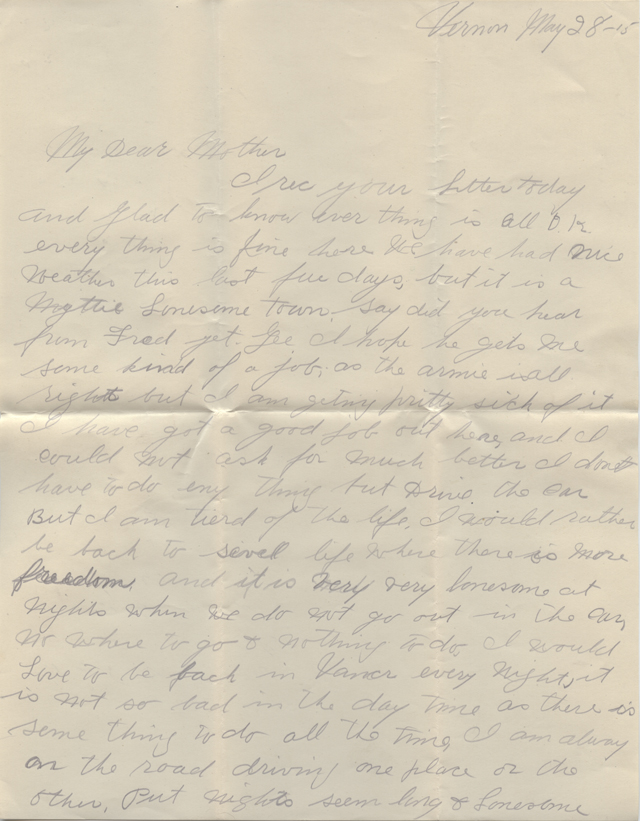 Vernon May 28-15
My Dear Mother
I rec your letter today
and glad to know ever thing is all O K
every thing is fine here We have had nice
Weather this last fue days, but it is a
Myttie Lonesome Town. Say did you hear
from Fred yet. Gee I hope he gets me
some kind of a job, as the armie is all
right but I am geting pritty sick of it
I have got a good job out here, and I
could not ask for much better I dont
have to do eny thing but Drive. the Car
But I am tierd of the life, I would rather
be back to sivell life where there is more
freedom, and it is very very lonesome at
Nights when we do not go out in the Car,
No where to go & nothing to do I would
Love to be back in Vancr every Night, it
is not so bad in the day time as there is
some thing to do all the time, I am alway
on the road driving one place or the
other, But nights seem long & Lonesome